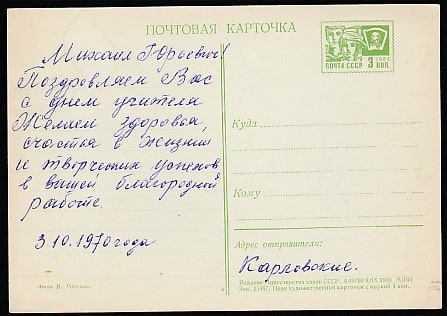 ПОЧТОВАЯ КАРТОЧКА
Михаил Юрьевич!
Поздровляем Вас
с днем учителя
Желаем здоровья,
счастья в жизни
и творческих успехов
в вашей благородной
работе.
3.10.1970 года
Фото Б.
1966
ПОЧТА СССР 3 КОП.
Куда
Кому
Адрес отправителя:
Карловские.
Издание Министерства связи СССР.
Зак. Цена художественной карточки с маркой 4 коп.